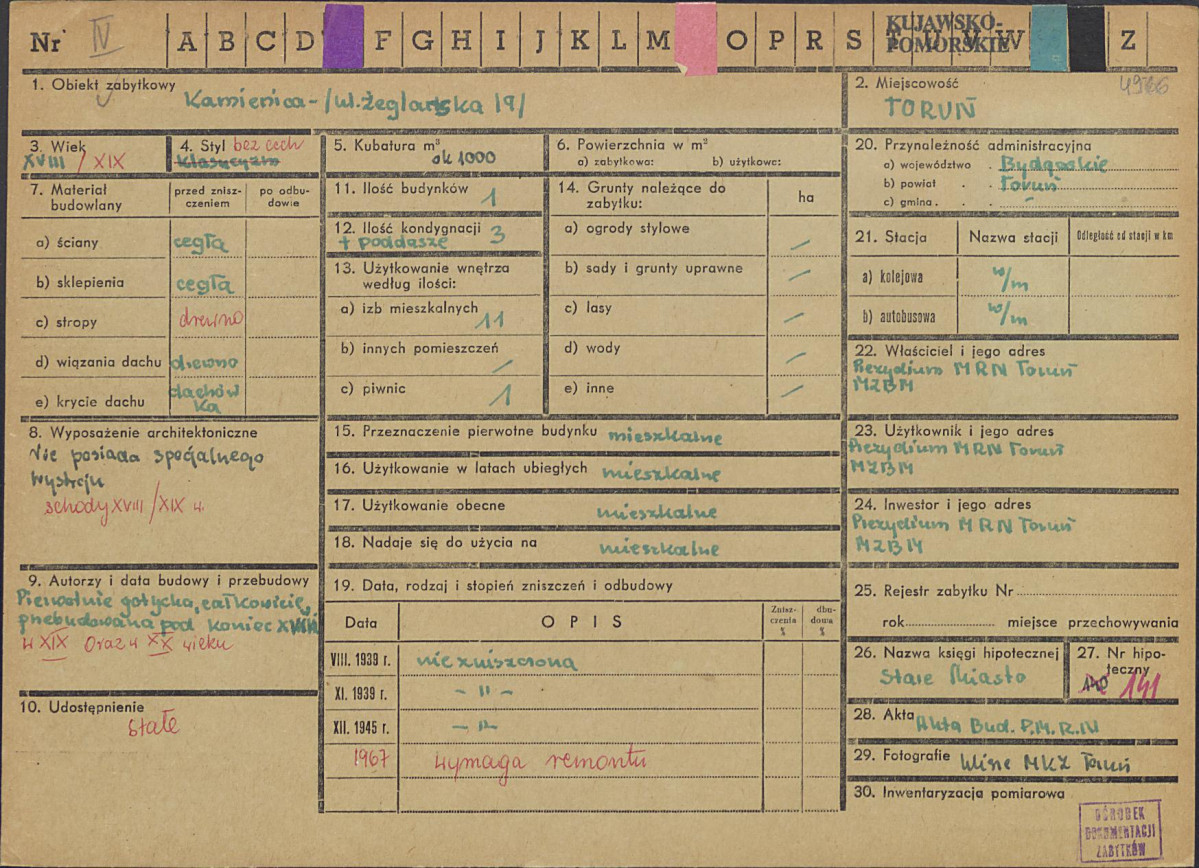 Nr IV A B C D F G H I J K L M O P R S T U V W Z
KUJAWSKO-
POMORSKIE
1. Obiekt zabytkowy
Kamienica - /ul. Żeglarska 19/
2. Miejscowość 4966
TORUŃ
3. Wiek
XVIII / XIX
4. Styl bez cech
klasycyzm
5. Kubatura m³
ok 1000
6. Powierzchnia w m²
a) zabytkowa: b) użytkowa:
7. Materiał
budowlany
przed znisz-
czeniem
po odbu-
dowie
a) ściany cegła
b) sklepienia cegła
c) stropy drewno
d) wiązania dachu drewno
e) krycie dachu dachów
ka
8. Wyposażenie architektoniczne
Nie posiada specjalnego
wystroju
schody XVIII/XIX w.
9. Autorzy i data budowy i przebudowy
Pierwotnie gotycka, całkowicie,
przebudowana pod koniec XVIII
w XIX oraz w XX wieku
10. Udostępnienie
stałe
11. Ilość budynków 1
12. Ilość kondygnacji 3
+ poddasze
13. Użytkowanie wnętrza
według ilości:
a) izb mieszkalnych 11
b) innych pomieszczeń /
c) piwnic 1
14. Grunty należące do
zabytku:
ha
a) ogrody stylowe /
b) sady i grunty uprawne /
c) lasy /
d) wody /
e) inne /
15. Przeznaczenie pierwotne budynku mieszkalne
16. Użytkowanie w latach ubiegłych mieszkalne
17. Użytkowanie obecne mieszkalne
18. Nadaje się do użycia na mieszkalne
19. Data, rodzaj i stopień zniszczeń i odbudowy
Data OPIS
Znisz-
czenia
%
dbu-
dowa
%
VIII. 1939 r. nie zniszczona
XI. 1939 r. - " -
XII. 1945 r. - " -
1967 wymaga remontu
20. Przynależność administracyjna
a) województwo . Bydgoskie
b) powiat . . Toruń
c) gmina . .
21. Stacja Nazwa stacji Odległość od stacji w km
a) kolejowa w/m
b) autobusowa w/m
22. Właściciel i jego adres
Prezydium MRN Toruń
MZBM
23. Użytkownik i jego adres
Prezydium MRN Toruń
MZBM
24. Inwestor i jego adres
Prezydium MRN Toruń
MZBM
25. Rejestr zabytku Nr
rok miejsce przechowywania
26. Nazwa księgi hipotecznej
Stare Miasto
27. Nr hipo-
teczny
140 141
28. Akta Akta Bud. P.M.R.N
29. Fotografie klisze MKZ Toruń
30. Inwentaryzacja pomiarowa
OŚRODEK
DOKUMENTACJI
ZABYTKÓW